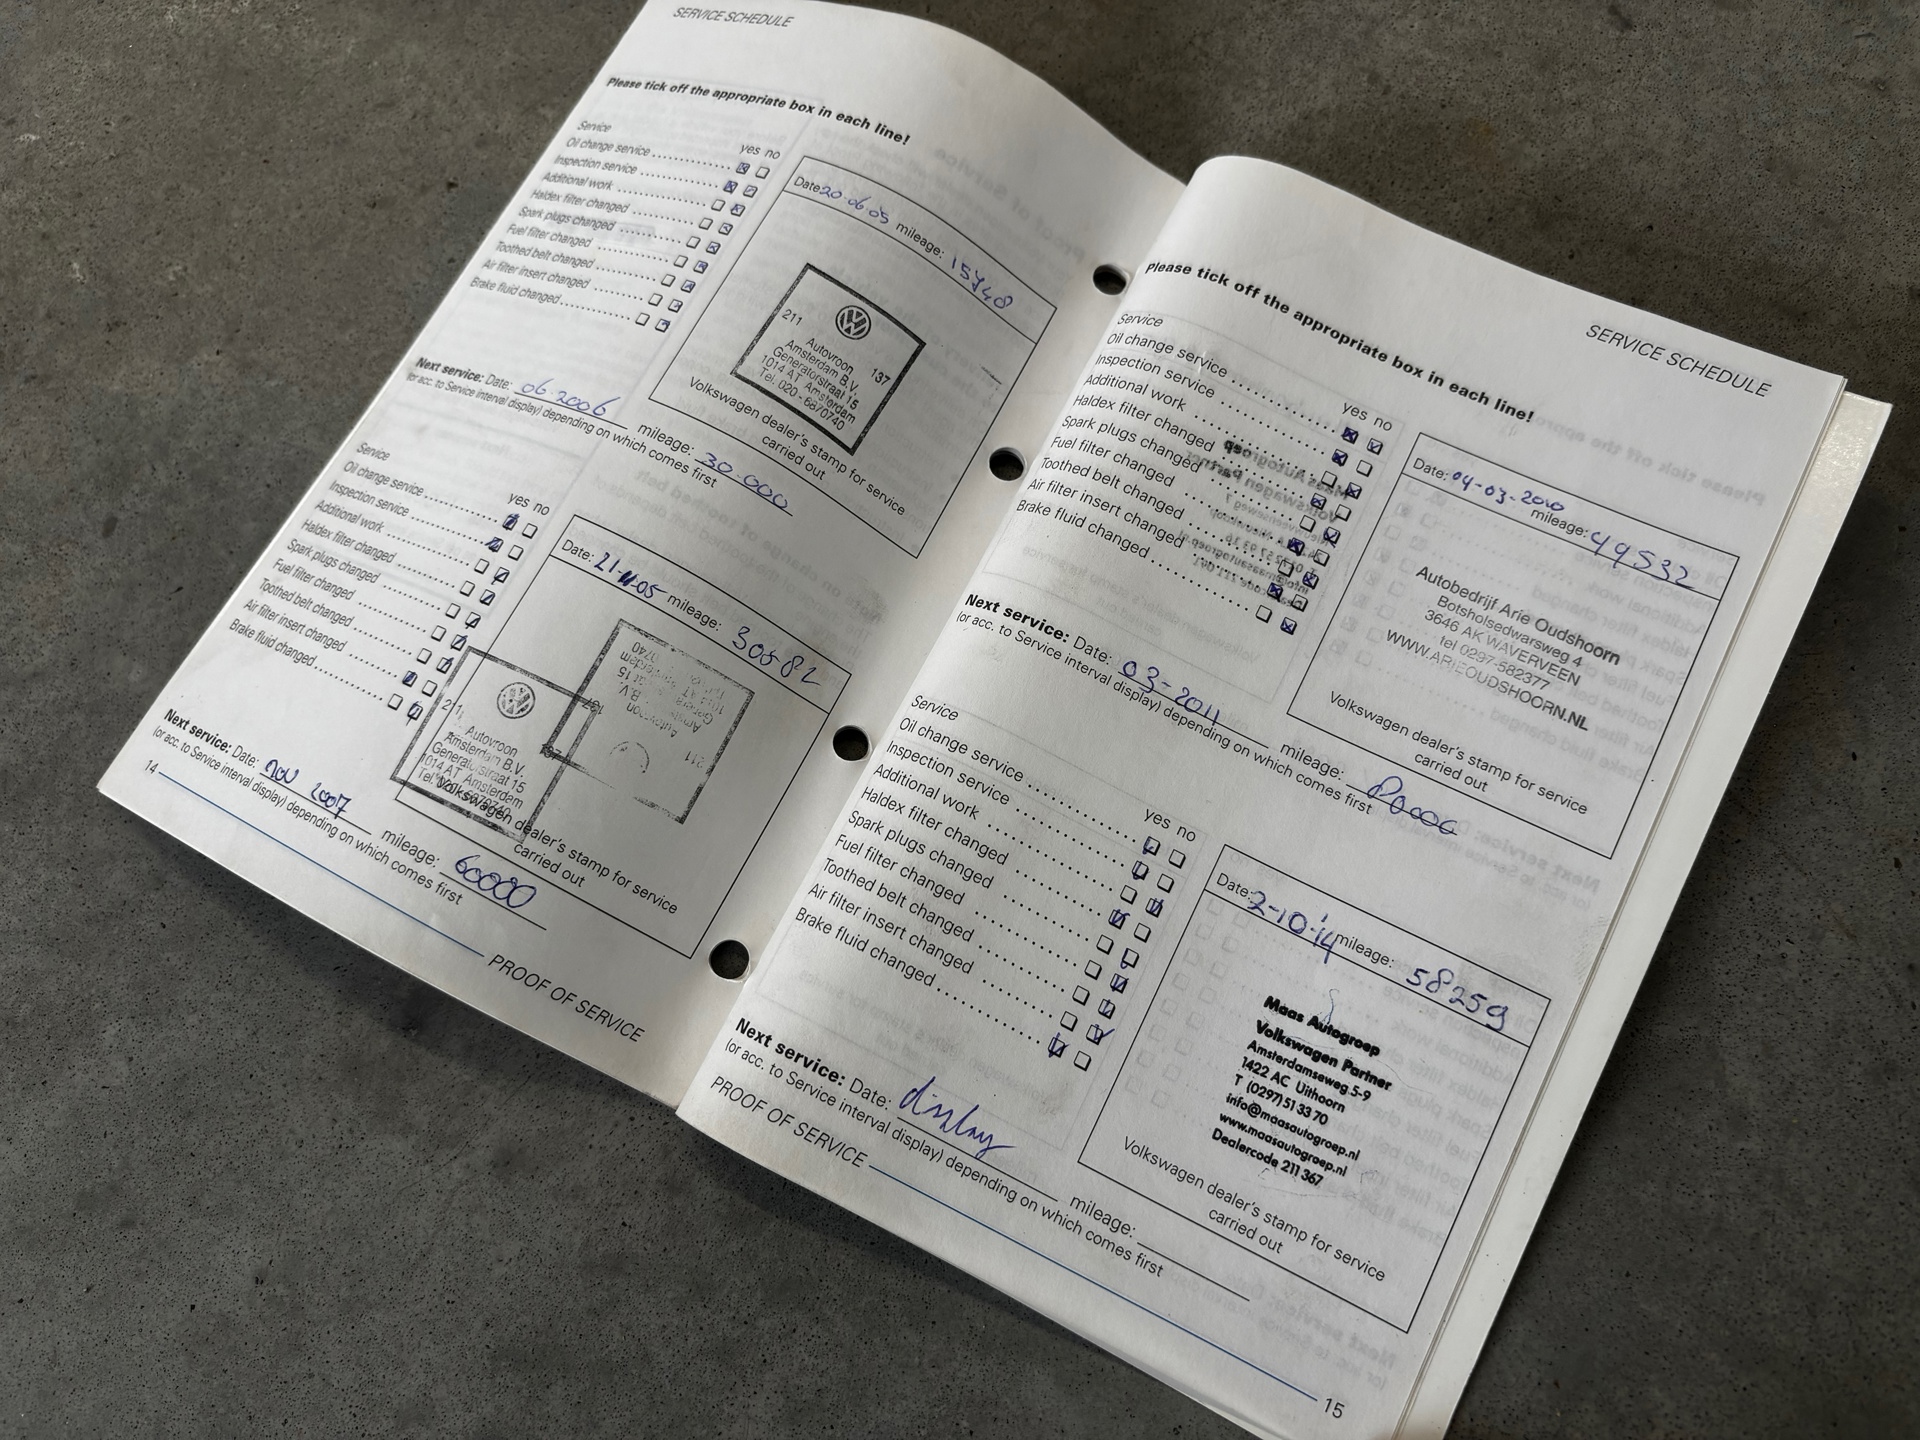 SERVICE SCHEDULE
Please tick off the appropriate box in each line!
Service
yes no
Oil change service
Inspection service
Additional work
Haldex filter changed
Spark plugs changed
Fuel filter changed
Toothed belt changed
Air filter insert changed
Brake fluid changed
Date: 20-06-05 mileage: 15748
211
137
Autovroon
Amsterdam B.V.
Generatorstraat 15
1014 AT Amsterdam
Tel. 020 - 6870740
Volkswagen dealer's stamp for service
carried out
Next service: Date: 06-2006 mileage: 30.000
(or acc. to Service interval display) depending on which comes first
Service
yes no
Oil change service
Inspection service
Additional work
Haldex filter changed
Spark plugs changed
Fuel filter changed
Toothed belt changed
Air filter insert changed
Brake fluid changed
Date: 21-11-05 mileage: 30582
Autovroon
Amsterdam B.V.
Generatorstraat 15
1014 AT Amsterdam
Volkswagen dealer's stamp for service
carried out
Next service: Date: nov 2007 mileage: 60000
(or acc. to Service interval display) depending on which comes first
14
PROOF OF SERVICE
SERVICE SCHEDULE
Please tick off the appropriate box in each line!
Service
yes no
Oil change service
Inspection service
Additional work
Haldex filter changed
Spark plugs changed
Fuel filter changed
Toothed belt changed
Air filter insert changed
Brake fluid changed
Date: 04-03-2010
mileage: 49532
Autobedrijf Arie Oudshoorn
Botsholsedwarsweg 4
3646 AK WAVERVEEN
tel 0297-582377
WWW.ARIEOUDSHOORN.NL
Volkswagen dealer's stamp for service
carried out
Next service: Date: 03-2011 mileage:
(or acc. to Service interval display) depending on which comes first
Service
yes no
Oil change service
Inspection service
Additional work
Haldex filter changed
Spark plugs changed
Fuel filter changed
Toothed belt changed
Air filter insert changed
Brake fluid changed
Date: 2-10-14 mileage: 58259
Maas Autogroep
Volkswagen Partner
Amsterdamseweg 5-9
1422 AC Uithoorn
T (0297) 51 33 70
info@maasautogroep.nl
www.maasautogroep.nl
Dealercode 211 367
Volkswagen dealer's stamp for service
carried out
Next service: Date: display mileage:
(or acc. to Service interval display) depending on which comes first
PROOF OF SERVICE
15